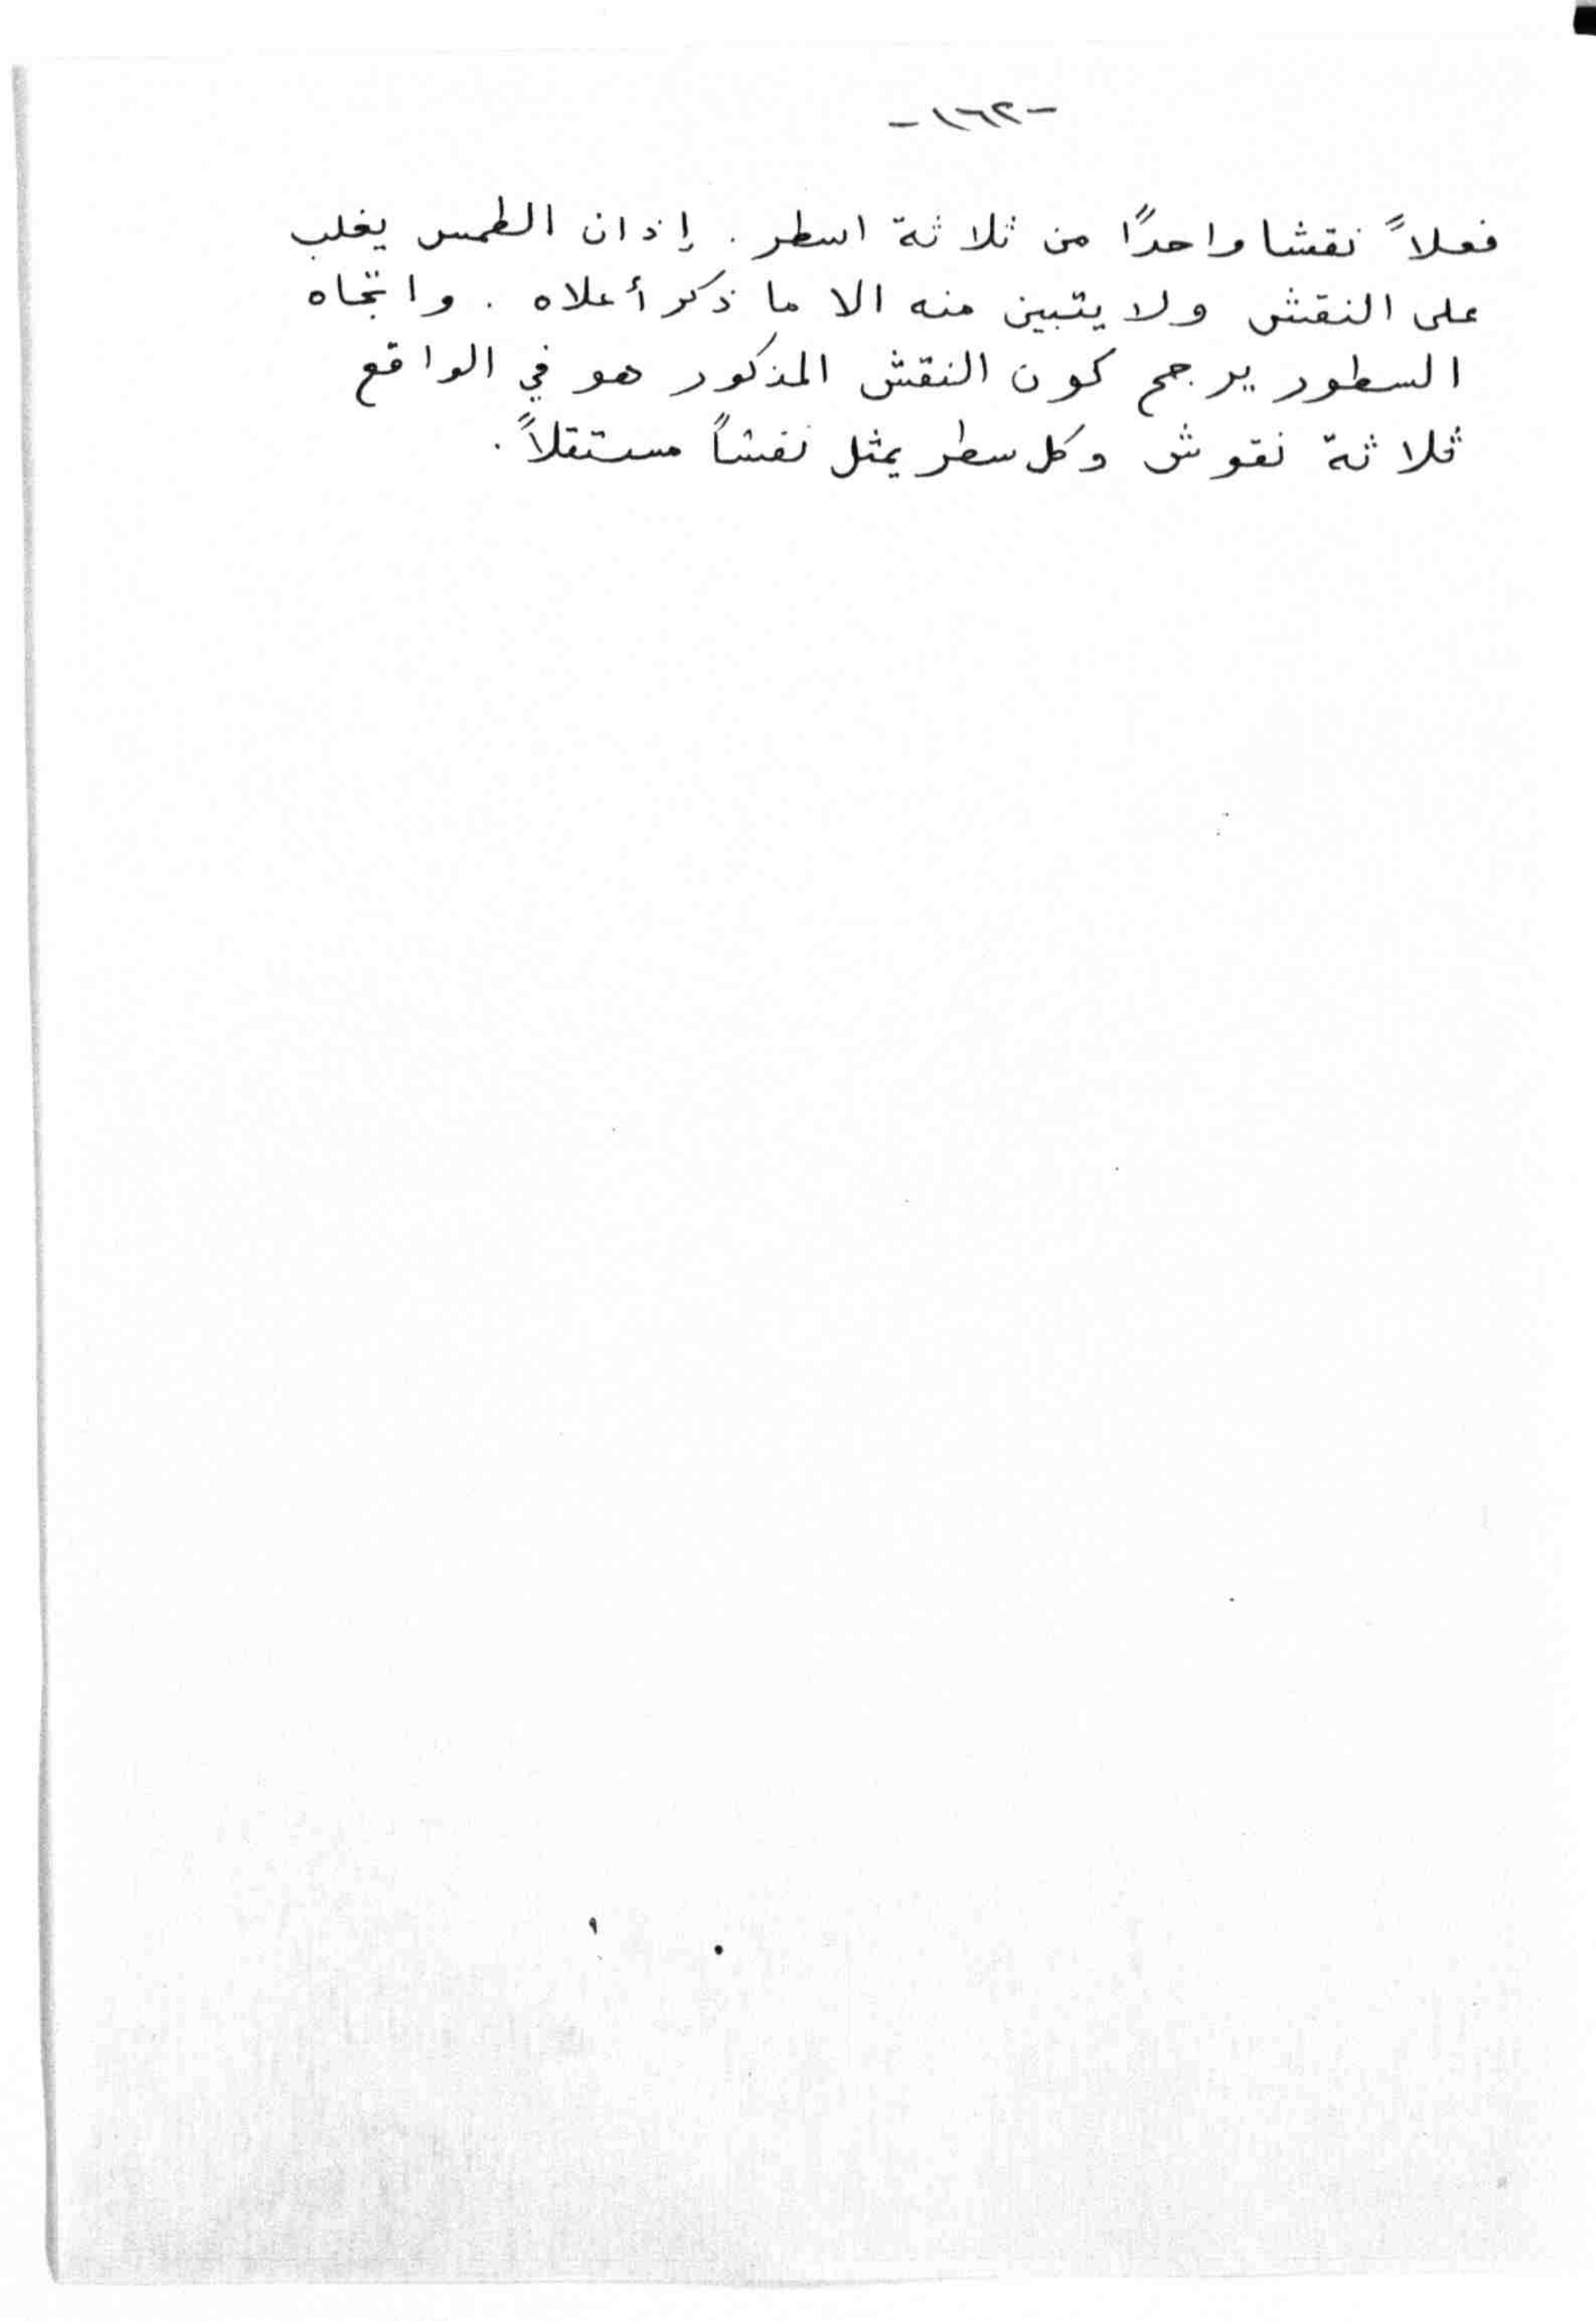 -١٦٢-
فعلاً نقشا واحداً من ثلاثة اسطر . إذ ان الطمس يغلب
على النقش ولا يتبين منه الا ما ذكر أعلاه . واتجّاه
السطور يرجح كون النقش المذكور هو في الواقع
ثلاثة نقوش وكل سطر يمثل نقشاً مستقلاً .